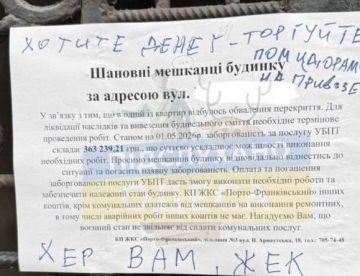 ХОТИТЕ ДЕНЕГ - ТОРГУЙТЕ
ПОМИДОРАМИ
НА ПРИВОЗЕ
Шановні мешканці будинку
за адресою вул.
У зв'язку з тим, що в одній із квартир відбулось обвалення перекриття. Для
ліквідації наслідків та вивезення будівельного сміття необхідне термінове
проведення робіт. Станом на 01.05.2026р. заборгованість за послугу УБПТ
складає 363 239,21 грн., що суттєво ускладнює можливість виконання
необхідних робіт. Просимо мешканців будинку відповідально віднестись до
ситуації та погасити наявну заборгованість. Оплата та погашення
заборгованості послуги УБПТ дасть змогу виконати необхідні роботи та
забезпечити належний стан будинку. КП ЖКС «Порто-Франківський» інших
коштів, крім комунальних платежів від мешканців на виконання ремонтних,
в тому числі аварійних робіт інших коштів не має. Нагадуємо Вам, що
воєнний стан не звільняє від сплати комунальних послуг.
КП ЖКС «Порто-Франківський», дільниця №3 вул. В. Арнаутська, 18, тел.: 705-74-48
ХЕР ВАМ, ЖЕК